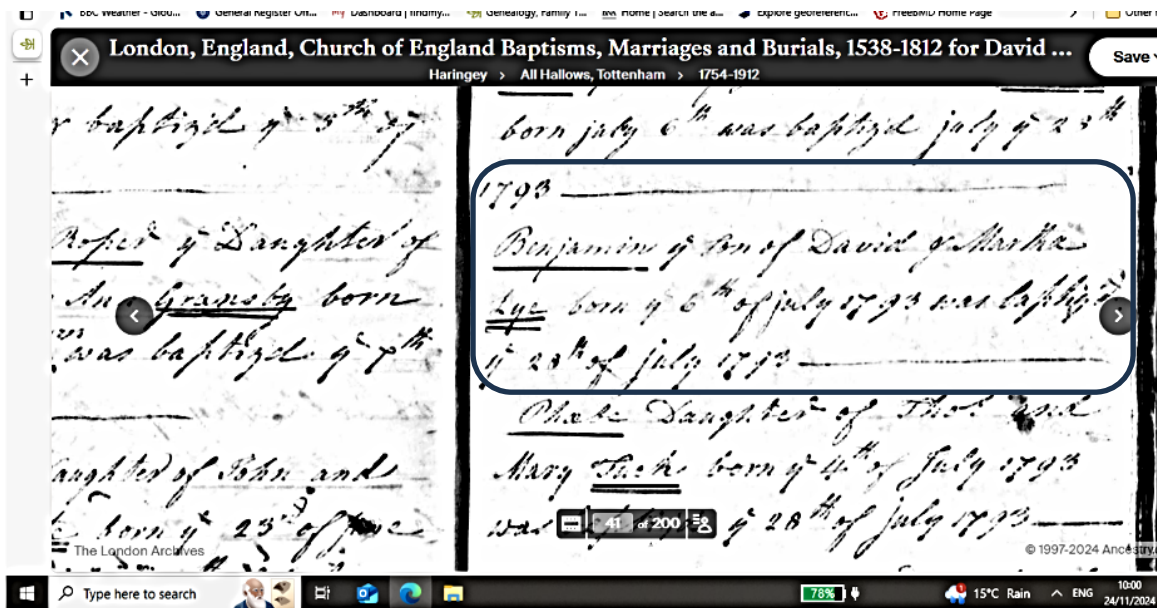 BBC Weather - Glou...
General Register Off...
Dashboard | findmy...
Genealogy, Family T...
Home | Search the a...
Explore georeferenc...
FreeBMD Home Page
London, England, Church of England Baptisms, Marriages and Burials, 1538-1812 for David ...
Save
Haringey > All Hallows, Tottenham > 1754-1912
baptiz'd ye 5th of
Roper ye Daughter of
Ann Gransby born
was baptizd ye 7th
aughter of John and
born ye 23d of
born july 6th was baptizd july ye 28th
1793
Benjamin ye Son of David & Martha
Lye born ye 6th of july 1793 was baptizd
ye 28th of july 1793
Phebe Daughter of Thos and
Mary Tuck born ye 4th of July 1793
was ye 28th of july 1793
41 of 200
The London Archives
© 1997-2024 Ancestry.
Type here to search
78%
15°C Rain
ENG
10:00
24/11/2024